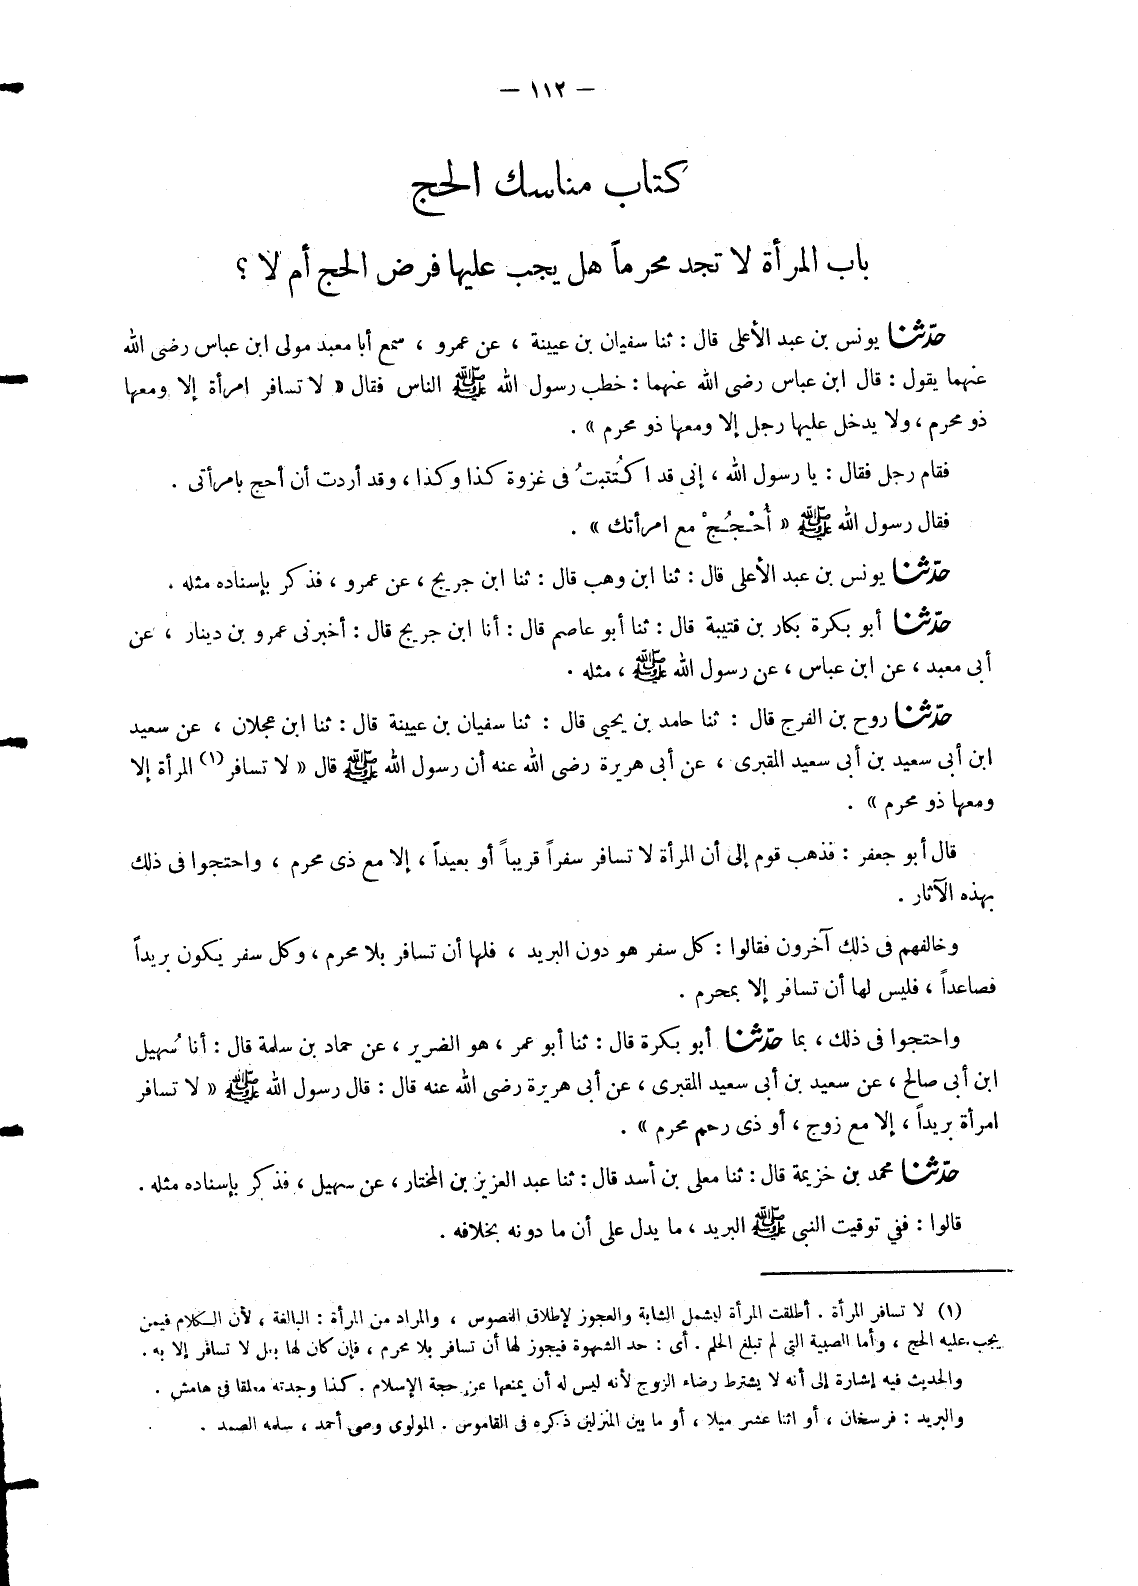 — ١١٢ —
كتاب مناسك الحج
باب المرأة لا تجد محرماً هل يجب عليها فرض الحج أم لا ؟
حدّثنا يونس بن عبد الأعلى قال : ثنا سفيان بن عيينة ، عن عمرو ، سمع أبا معبد مولى ابن عباس رضى الله
عنهما يقول : قال ابن عباس رضى الله عنهما : خطب رسول الله ﷺ الناس فقال « لا تسافر امرأة إلا ومعها
ذو محرم ، ولا يدخل عليها رجل إلا ومعها ذو محرم » .
فقام رجل فقال : يا رسول الله ، إنى قد اكتُتبتُ فى غزوة كذا وكذا ، وقد أردت أن أحج بامرأتى .
فقال رسول الله ﷺ « أُحْجُجْ مع امرأتك » .
حدّثنا يونس بن عبد الأعلى قال : ثنا ابن وهب قال : ثنا ابن جريج ، عن عمرو ، فذكر بإسناده مثله .
حدّثنا أبو بكرة بكار بن قتيبة قال : ثنا أبو عاصم قال : أنا ابن جريج قال : أخبرنى عمرو بن دينار ، عن
أبى معبد ، عن ابن عباس ، عن رسول الله ﷺ ، مثله .
حدّثنا روح بن الفرج قال : ثنا حامد بن يحيى قال : ثنا سفيان بن عيينة قال : ثنا ابن عجلان ، عن سعيد
ابن أبى سعيد بن أبى سعيد المقبرى ، عن أبى هريرة رضى الله عنه أن رسول الله ﷺ قال « لا تسافر(١) المرأة إلا
ومعها ذو محرم » .
قال أبو جعفر : فذهب قوم إلى أن المرأة لا تسافر سفراً قريباً أو بعيداً ، إلا مع ذى محرم ، واحتجوا فى ذلك
بهذه الآثار .
وخالفهم فى ذلك آخرون فقالوا : كل سفر هو دون البريد ، فلها أن تسافر بلا محرم ، وكل سفر يكون بريداً
فصاعداً ، فليس لها أن تسافر إلا بمحرم .
واحتجوا فى ذلك ، بما حدّثنا أبو بكرة قال : ثنا أبو عمر ، هو الضرير ، عن حماد بن سلمة قال : أنا سُهيل
ابن أبى صالح ، عن سعيد بن أبى سعيد المقبرى ، عن أبى هريرة رضى الله عنه قال : قال رسول الله ﷺ « لا تسافر
امرأة بريداً ، إلا مع زوج ، أو ذى رحم محرم » .
حدّثنا محمد بن خزيمة قال : ثنا معلى بن أسد قال : ثنا عبد العزيز بن المختار ، عن سهيل ، فذكر بإسناده مثله .
قالوا : ففي توقيت النبى ﷺ البريد ، ما يدل على أن ما دونه بخلافه .
(١) لا تسافر المرأة . أطلقت المرأة ليشمل الشابة والعجوز لإطلاق النصوص ، والمراد من المرأة : البالغة ، لأن الكلام فيمن
يجب عليه الحج ، وأما الصبية التى لم تبلغ الحلم . أى : حد الشهوة فيجوز لها أن تسافر بلا محرم ، فإن كان لها بعل لا تسافر إلا به .
والحديث فيه إشارة إلى أنه لا يشترط رضاء الزوج لأنه ليس له أن يمنعها عن حجة الإسلام . كذا وجدته معلقا فى هامش .
والبريد : فرسخان ، أو اثنا عشر ميلا ، أو ما بين المنزلين ذكره فى القاموس . المولوى وصى أحمد ، سلمه الصمد .